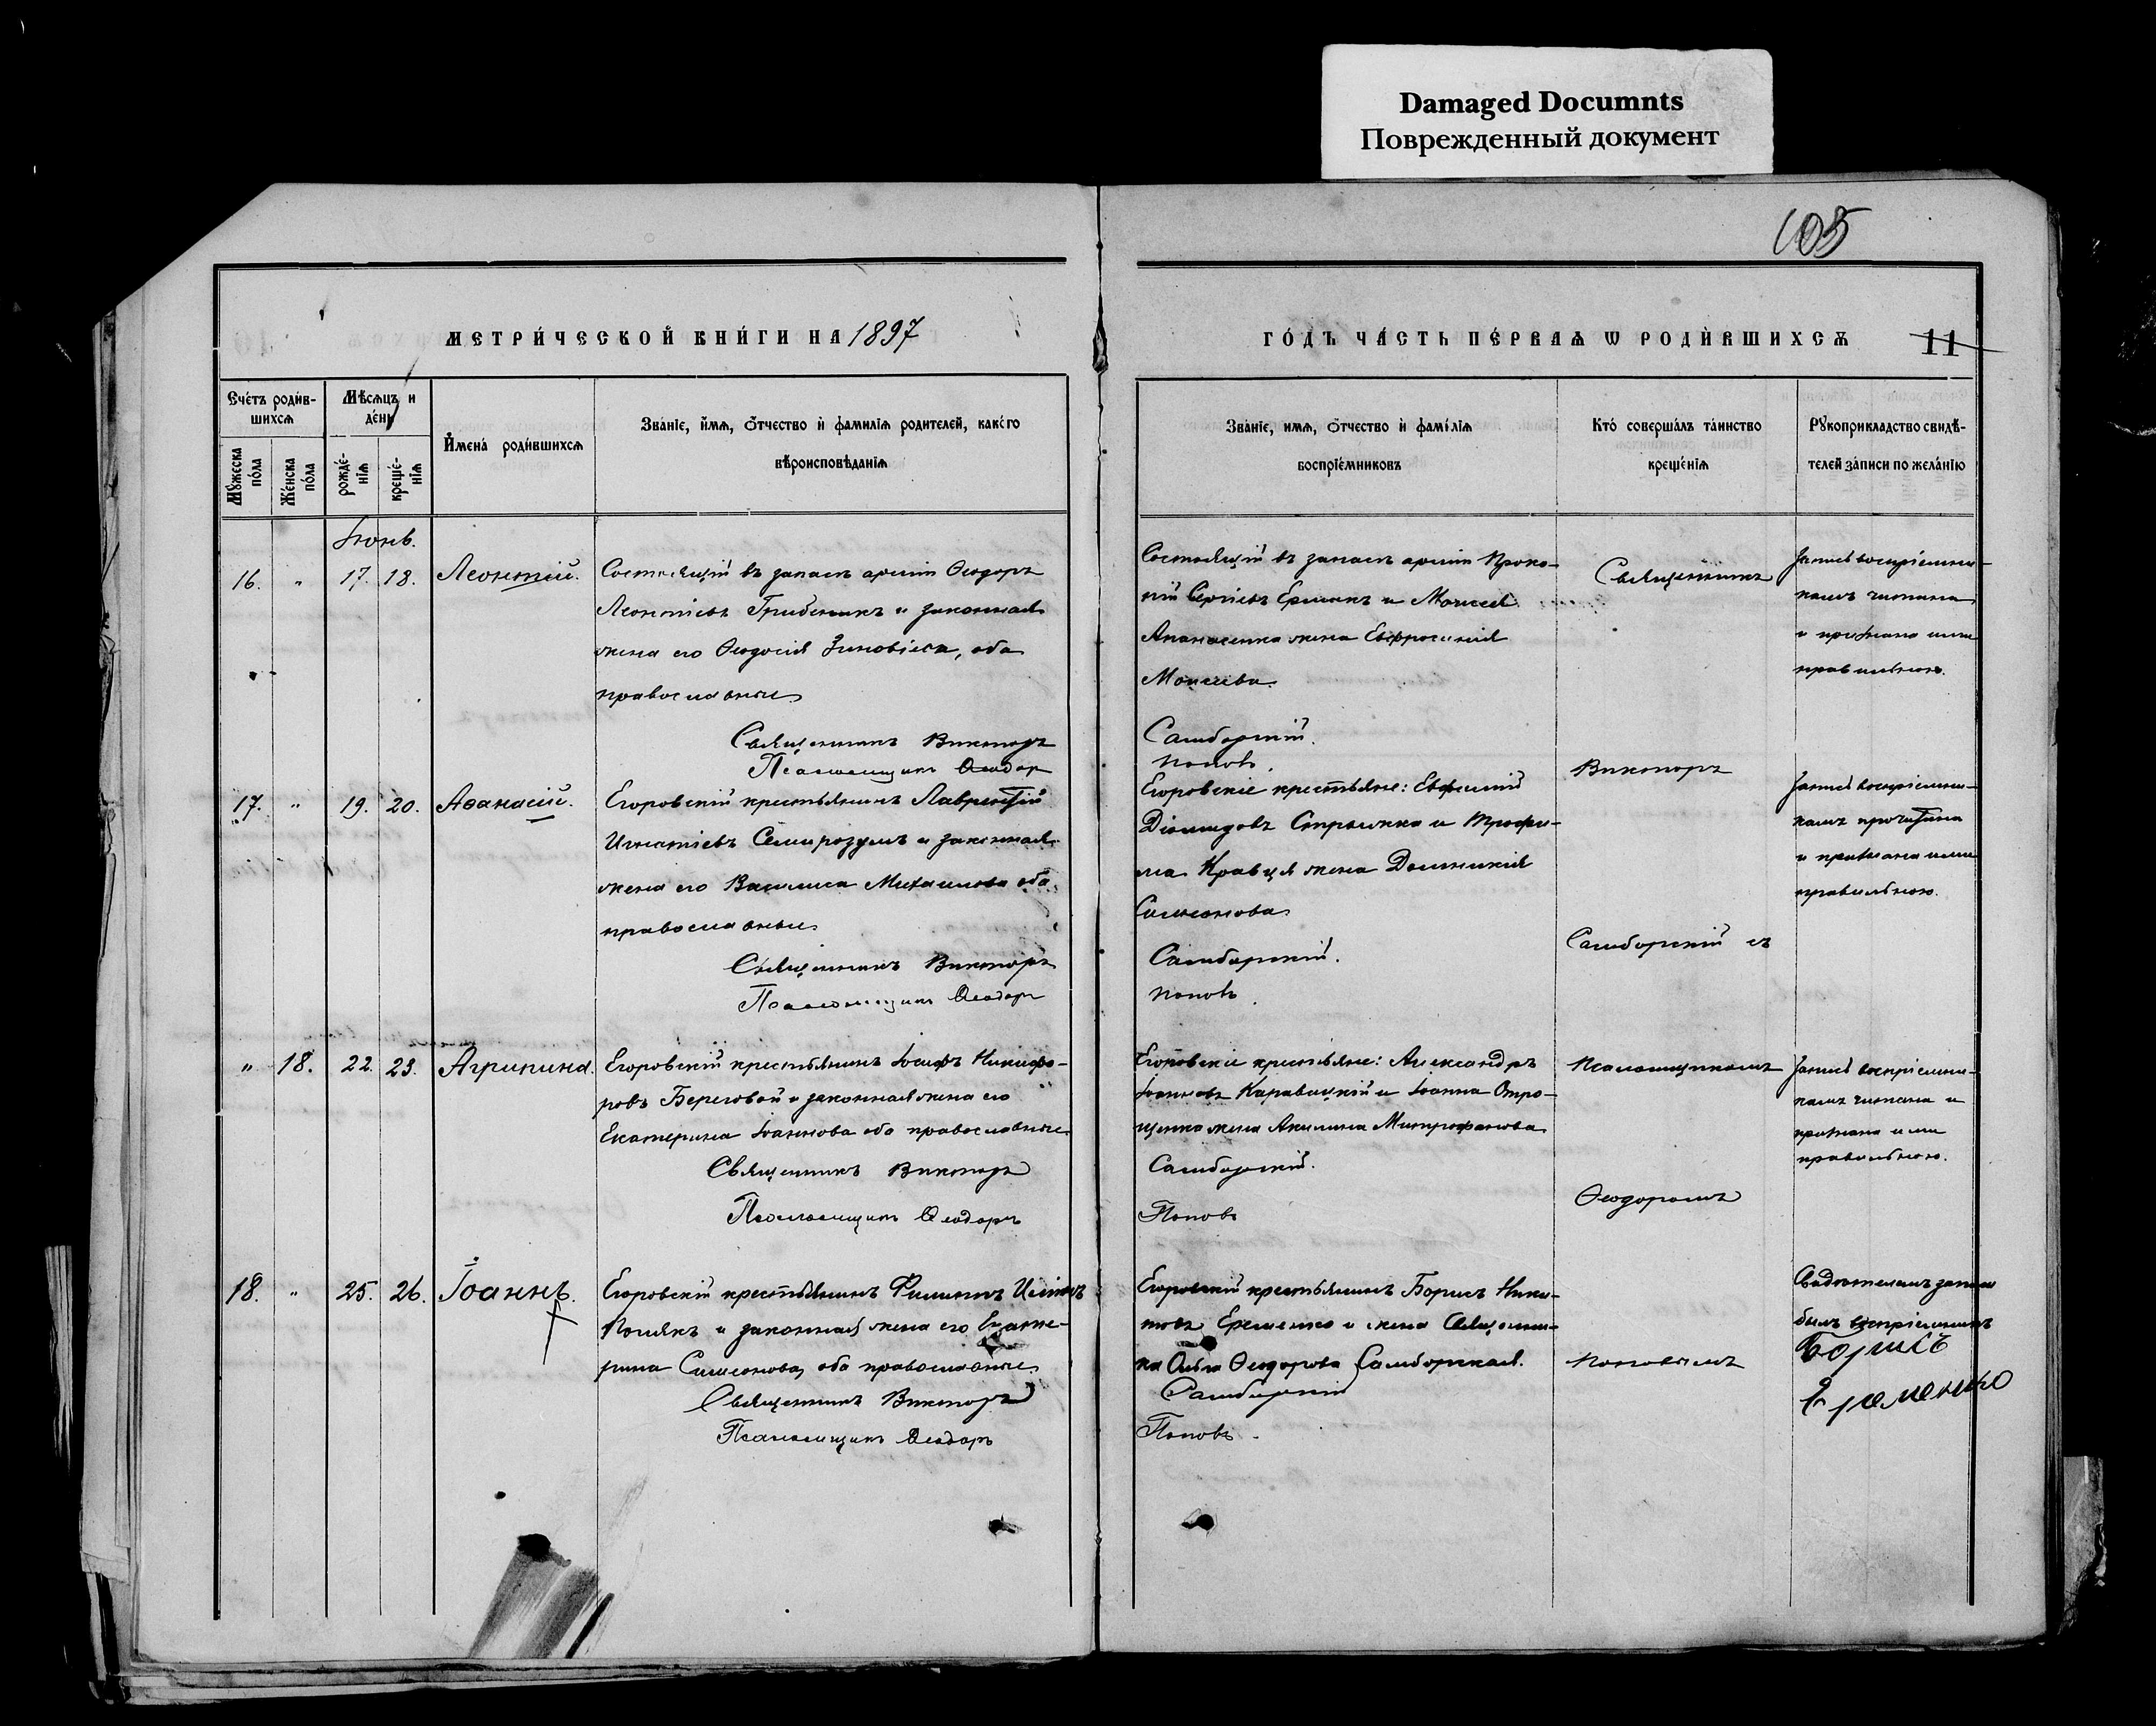 Damaged Documnts
Поврежденный документ
105
МЕТРИ́ЧЕСКОЙ КНИ́ГИ НА 1897
ГО́ДЪ ЧА́СТЬ ПЕ́РВАѦ Ѡ РОДИ́ВШИХСѦ
11
Счéтъ роди́в-
шихсѧ
Мѣ́сѧцъ и
де́нь
И҆мена̀ роди́вшихсѧ
Зва́нїе, и҆́мѧ, ѻ҆́тчество и҆ фамилїѧ родителей, како́го
вѣроисповѣ́данїѧ
Мꙋ́жеска
по́ла
Же́нска
по́ла
рожде́-
нїѧ
креще́-
нїѧ
Зва́нїе, имѧ, ѻ҆́тчество и҆ фамі́лїѧ
воспрїе́мниковъ
Кто̀ соверша́лъ та́инство
креще́нїѧ
Рꙋкоприкладство свидѣ́-
телей за́писи по жела́нїю
Іюнь.
16. " 17. 18. Леонтій.
Состоящій въ запасѣ арміи Ѳеодоръ
Леонтіевъ Грибеникъ и законная
жена его Ѳеодосія Зиновіева, оба
православные
Священникъ Викторъ
Псаломщикъ Ѳеодор
Состоящій въ запасѣ арміи Проко-
пій Сергіевъ Ермакъ и Моисея
Апанасенка жена Евфросинія
Моисеева.
Самборскій.
Поповъ.
Священникъ
Запись воспріемни-
камъ читана
и признана ими
правильною.
17. " 19. 20. Аѳанасій.
Егоровскій крестьянинъ Лаврентій
Игнатіевъ Семирозумъ и законная
жена его Василиса Михаилова оба
православные
Священникъ Викторъ
Псаломщикъ Ѳеодоръ
Егоровскіе крестьяне: Евфимій
Діомидовъ Стрыжка и Трофи-
ма Кравця жена Домникія
Симеонова
Самборскій.
Поповъ.
Викторъ
Самборскій съ
Запись воспріемни-
камъ прочитана
и признана ими
правильною.
" 18. 22. 23. Агрипина.
Егоровскій крестьянинъ Іосифъ Никифо-
ровъ Береговой и законная жена его
Екатерина Іоаннова оба православные
Священникъ Викторъ
Псаломщикъ Ѳеодоръ
Егоровскіе крестьяне: Александръ
Іоанновъ Каравацкій и Іоанна Отро-
щенка жена Акилина Митрофанова
Самборскій.
Поповъ
Псаломщикомъ
Ѳеодоромъ
Запись воспріемни-
камъ читана и
признана ими
правильною.
18. " 25. 26. Іоаннъ.
Егоровскій крестьянинъ Филиппъ
Полякъ и законная жена его Екате-
рина Симеонова, оба православные
Священникъ Викторъ
Псаломщикъ Ѳеодоръ
Егоровскій крестьянинъ Борисъ Ники-
товъ Еременко и жена Священни-
ка Ольга Ѳеодорова Самборская.
Самборскій
Поповъ.
Поповымъ
Свидѣтелемъ записи
былъ воспріемникъ
Борисъ
Еременко